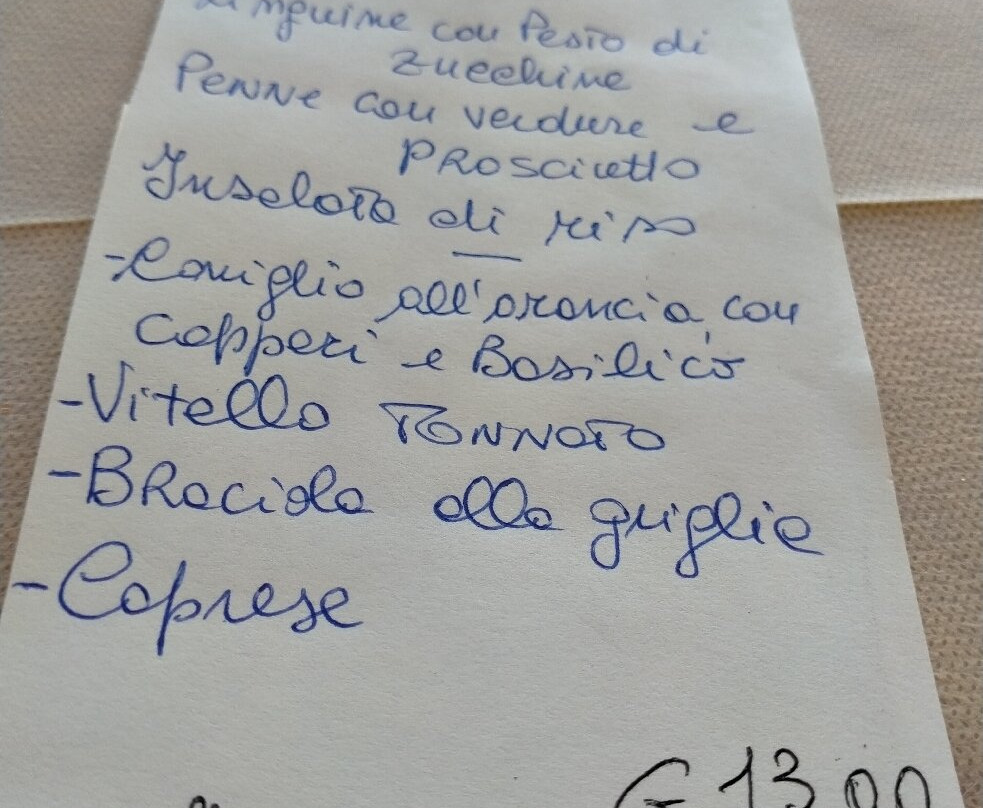 Linguine con Pesto di
Zucchine
Penne con verdure e
Prosciutto
Insalata di riso
-Coniglio all'arancia con
Capperi e Basilico
-Vitello Tonnato
-Braciola alla griglia
-Caprese
€ 13,00